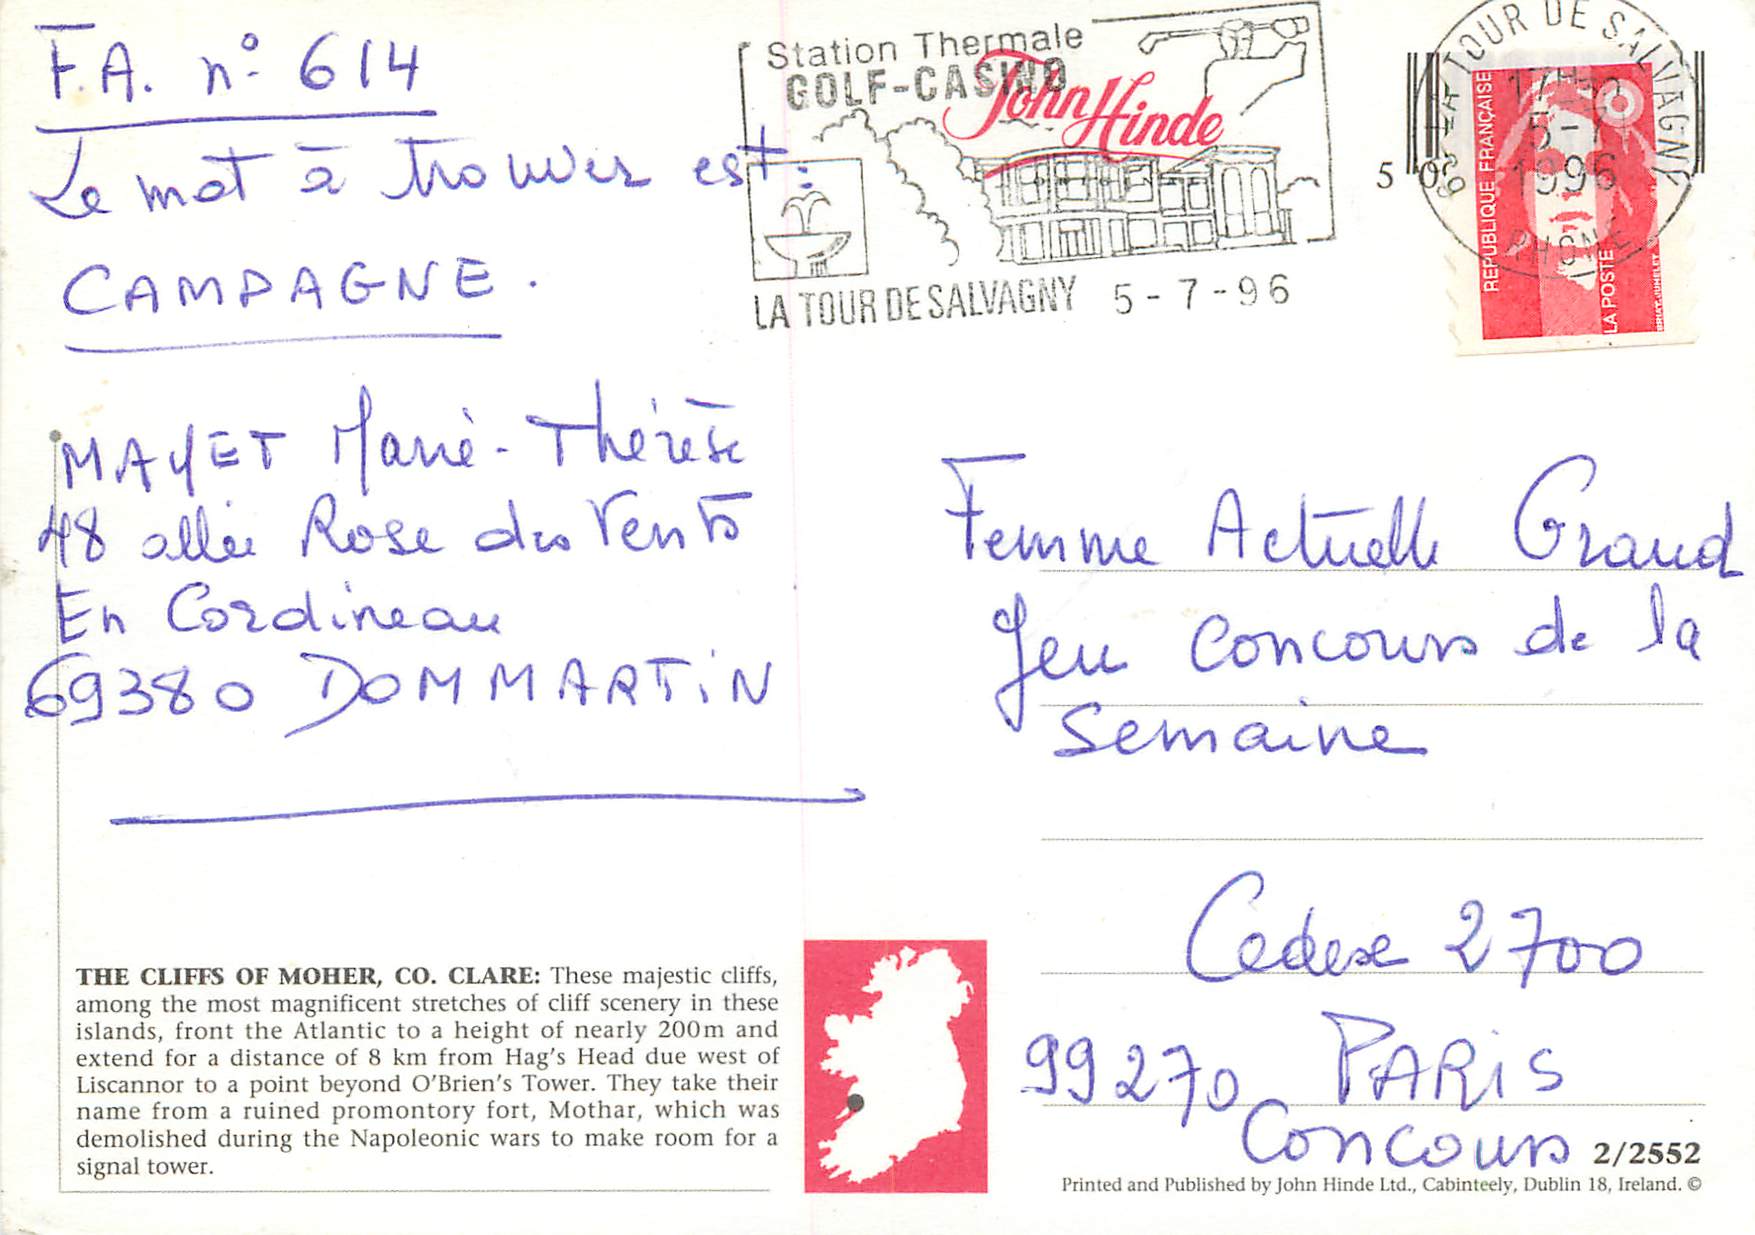 F.A. n° 614
Le mot à trouver est :
CAMPAGNE.
MAYET Marie-Thérèse
48 allée Rose des Vents
En Cordineau
69380 DOMMARTIN
THE CLIFFS OF MOHER, CO. CLARE: These majestic cliffs,
among the most magnificent stretches of cliff scenery in these
islands, front the Atlantic to a height of nearly 200m and
extend for a distance of 8 km from Hag's Head due west of
Liscannor to a point beyond O'Brien's Tower. They take their
name from a ruined promontory fort, Mothar, which was
demolished during the Napoleonic wars to make room for a
signal tower.
Station Thermale
GOLF-CASINO
John Hinde
LA TOUR DE SALVAGNY 5-7-96
5 
LA TOUR DE SALVAGNY
5-7
1996
RHONE
REPUBLIQUE FRANÇAISE
LA POSTE
Femme Actuelle Grand
Jeu Concours de la
Semaine
Cedex 2700
99270 PARIS
Concours
2/2552
Printed and Published by John Hinde Ltd., Cabinteely, Dublin 18, Ireland. ©